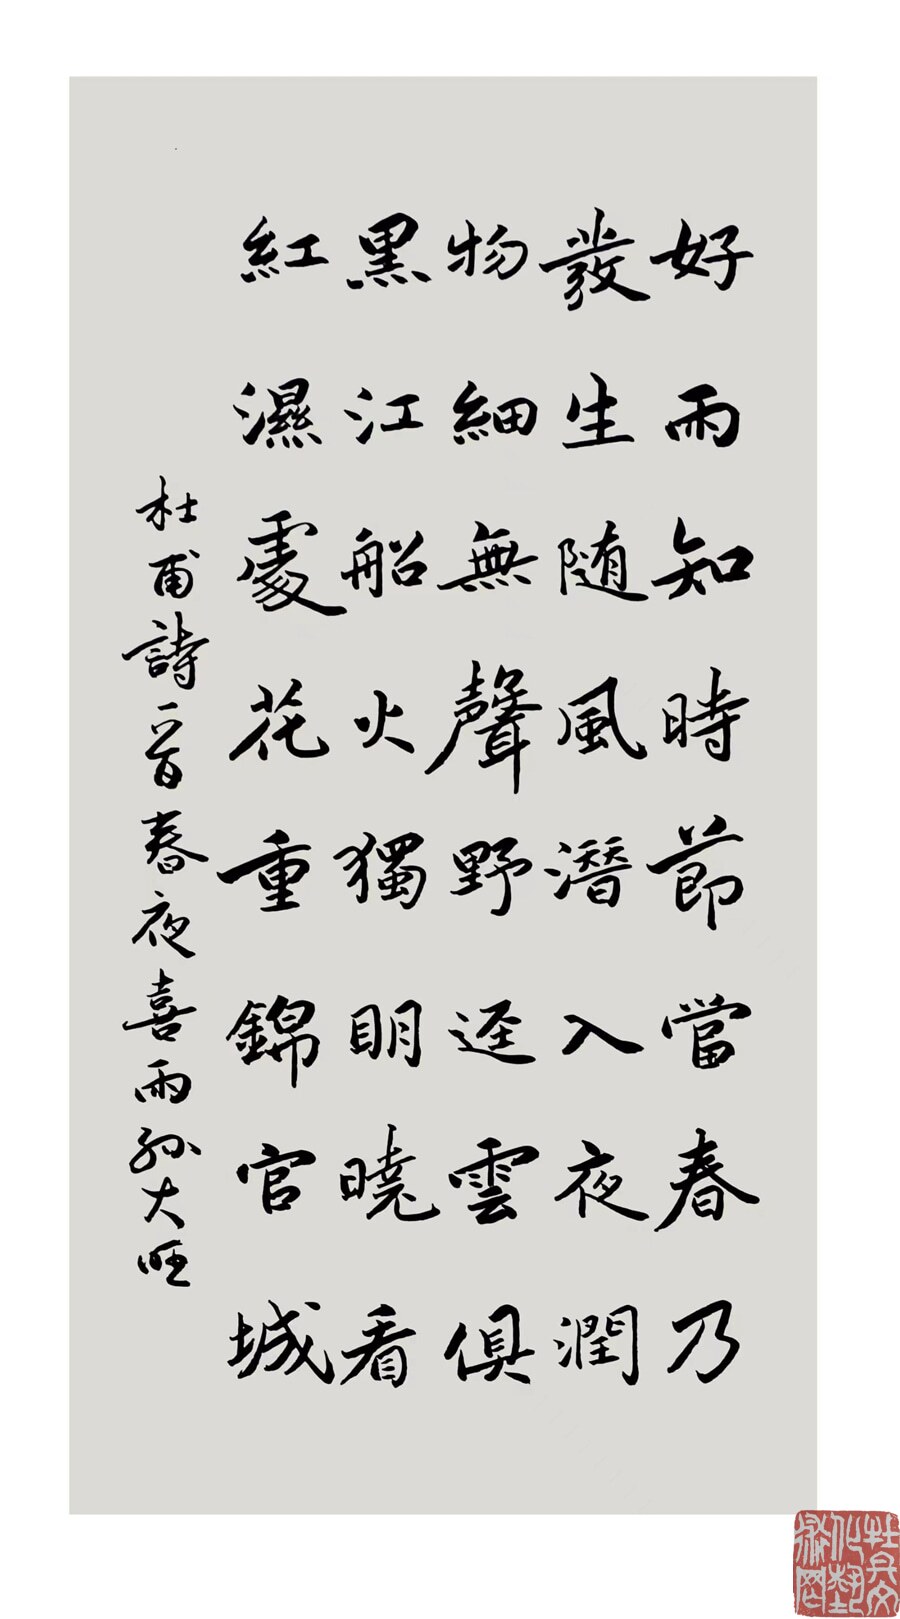 好雨知時節當春乃
發生随風潛入夜潤
物細無聲野迳雲俱
黑江船火獨明曉看
紅濕處花重錦官城
杜甫詩一首春夜喜雨孫大旺